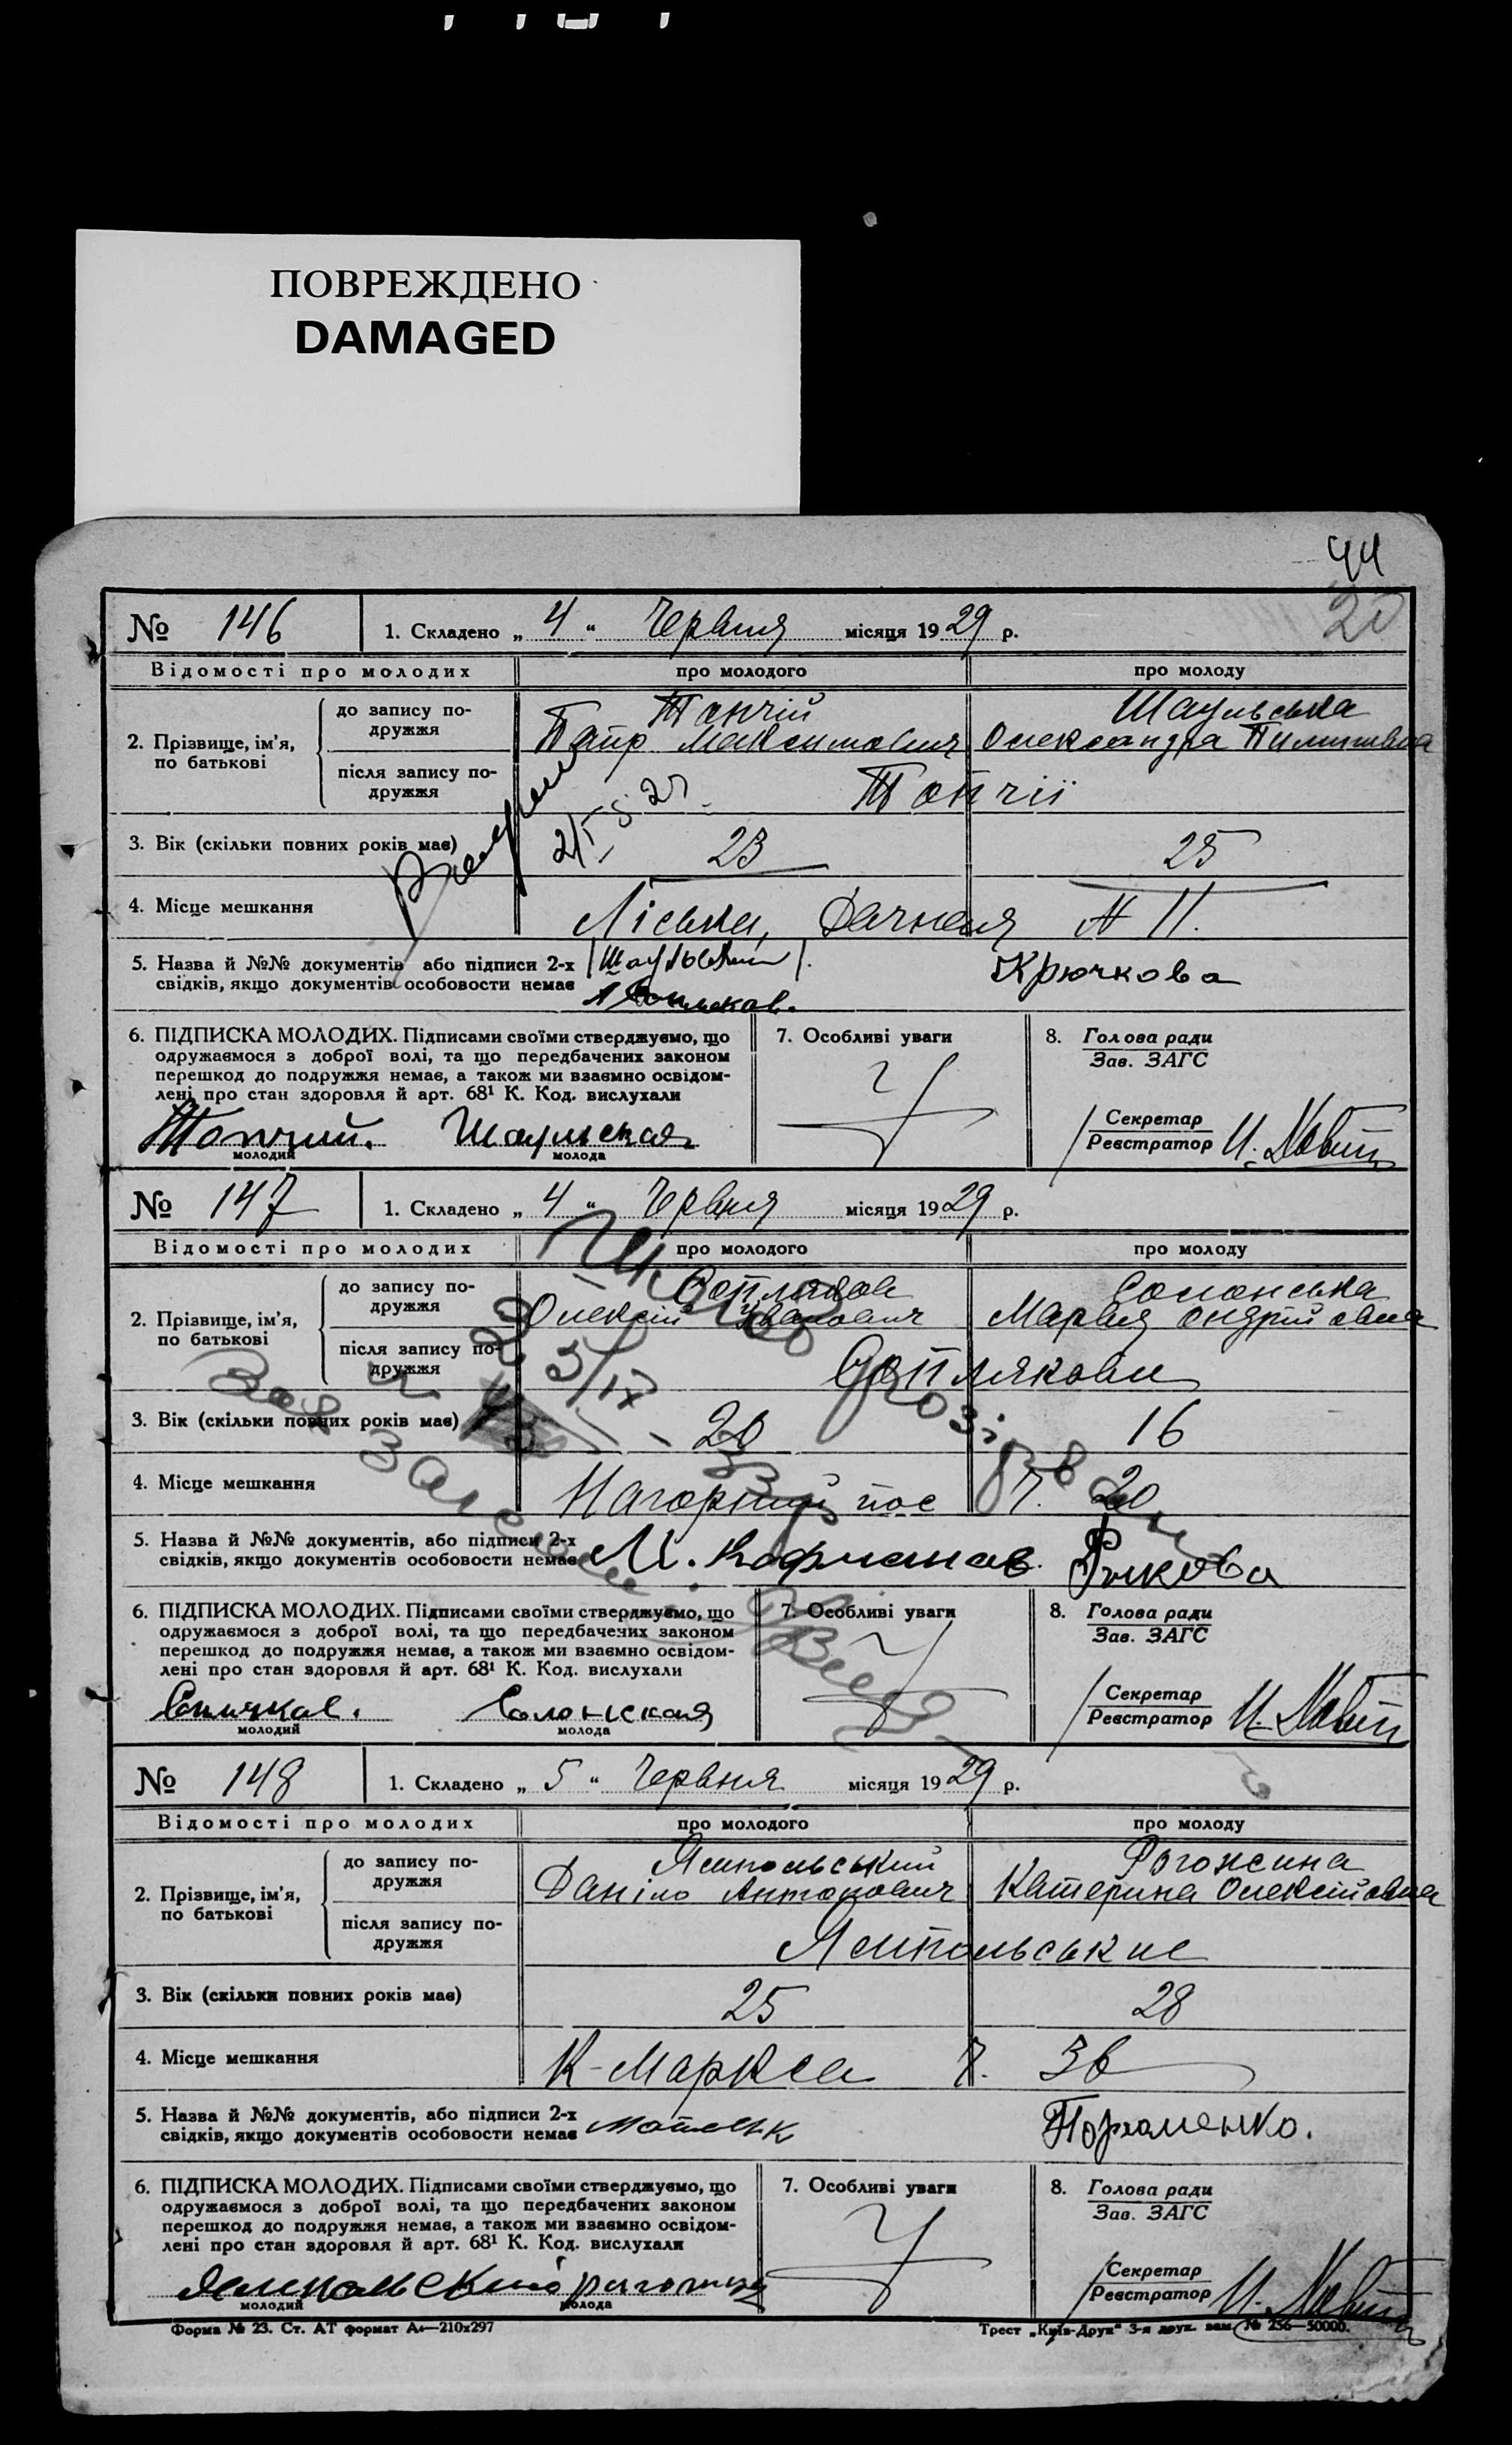 ПОВРЕЖДЕНО
DAMAGED
44
20
№ 146 1. Складено „ 4 “ Червня місяця 1929 р.
Відомості про молодих про молодого про молоду
2. Прізвище, ім'я, по батькові
до запису подружжя
Топчій Шаульська
Петр Максимович Олександра Пилипівна
після запису подружжя
Топчії
3. Вік (скільки повних років має) 23 25
4. Місце мешкання Лінська, Дачная № 11.
5. Назва й №№ документів або підписи 2-х
свідків, якщо документів особовости немає
Крючкова
6. ПІДПИСКА МОЛОДИХ. Підписами своїми стверджуємо, що
одружаємося з доброї волі, та що передбачених законом
перешкод до подружжя немає, а також ми взаємно освідом-
лені про стан здоровля й арт. 68¹ К. Код. вислухали
Топчий. Шаульская
молодий молода
7. Особливі уваги
8. Голова ради
Зав. ЗАГС
Секретар
Реєстратор
№ 147 1. Складено „ 4 “ Червня місяця 1929 р.
Відомості про молодих про молодого про молоду
2. Прізвище, ім'я,
по батькові
до запису по-
дружжя
Сопляков Солонська
Олексій Іванович Мария Андріївна
після запису по-
дружжя
Соплякови
3. Вік (скільки повних років має) 20 16
4. Місце мешкання Нагорный пос ч. 20
5. Назва й №№ документів, або підписи 2-х
свідків, якщо документів особовости немає
Рыкова
6. ПІДПИСКА МОЛОДИХ. Підписами своїми стверджуємо, що
одружаємося з доброї волі, та що передбачених законом
перешкод до подружжя немає, а також ми взаємно освідом-
лені про стан здоровля й арт. 68¹ К. Код. вислухали
Сопляков. Солонская
молодий молода
7. Особливі уваги
8. Голова ради
Зав. ЗАГС
Секретар
Реєстратор
№ 148 1. Складено „ 5 “ Червня місяця 1929 р.
Відомості про молодих про молодого про молоду
2. Прізвище, ім'я,
по батькові
до запису по-
дружжя
Ямпольський Рогожина
Даніло Антонович Катерина Олексіївна
після запису по-
дружжя
Ямпольськие
3. Вік (скільки повних років має) 25 28
4. Місце мешкання К-Маркса ч. 36
5. Назва й №№ документів, або підписи 2-х
свідків, якщо документів особовости немає
Пархоменко.
6. ПІДПИСКА МОЛОДИХ. Підписами своїми стверджуємо, що
одружаємося з доброї волі, та що передбачених законом
перешкод до подружжя немає, а також ми взаємно освідом-
лені про стан здоровля й арт. 68¹ К. Код. вислухали
Ямпольский
молодий молода
7. Особливі уваги
8. Голова ради
Зав. ЗАГС
Секретар
Реєстратор
Форма № 23. Ст. АТ формат А₄—210х297 Трест „Київ-Друк“ 3-я друк. зам. № 256—50000.